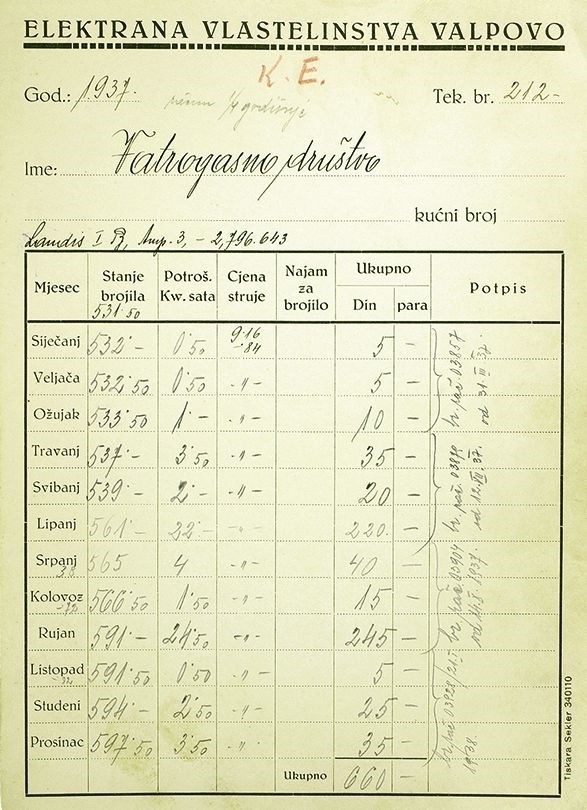 ELEKTRANA VLASTELINSTVA VALPOVO
K. E.
God.: 1937. Tek. br. 212-
/4 godišnje
Ime: Vatrogasno društvo
kućni broj
Landis Amp. 3, - 2,796.643
Mjesec Stanje brojila 531·50 Potroš. Kw. sata Cjena struje Najam za brojilo Ukupno Din para Potpis
Siječanj 532·- 0·50 9·16 -·84 5 -
Veljača 532·50 0·50 -"- 5 -
Ožujak 533·50 1·- -"- 10 -
Travanj 537·- 3·50 -"- 35 -
Svibanj 539·- 2·- -"- 20 -
Lipanj 561·- 22·- -"- 220 -
Srpanj 565 4 -"- 40 -
Kolovoz 566·50 1·50 -"- 15 -
Rujan 591·- 24·50 -"- 245 -
Listopad 591·50 0·50 -"- 5 -
Studeni 594·- 2·50 -"- 25 -
Prosinac 597·50 3·50 -"- 35 -
Ukupno 660 -
03857
od 31 III 37.
03904
1937.
1938.
Tiskara Sekler 340110